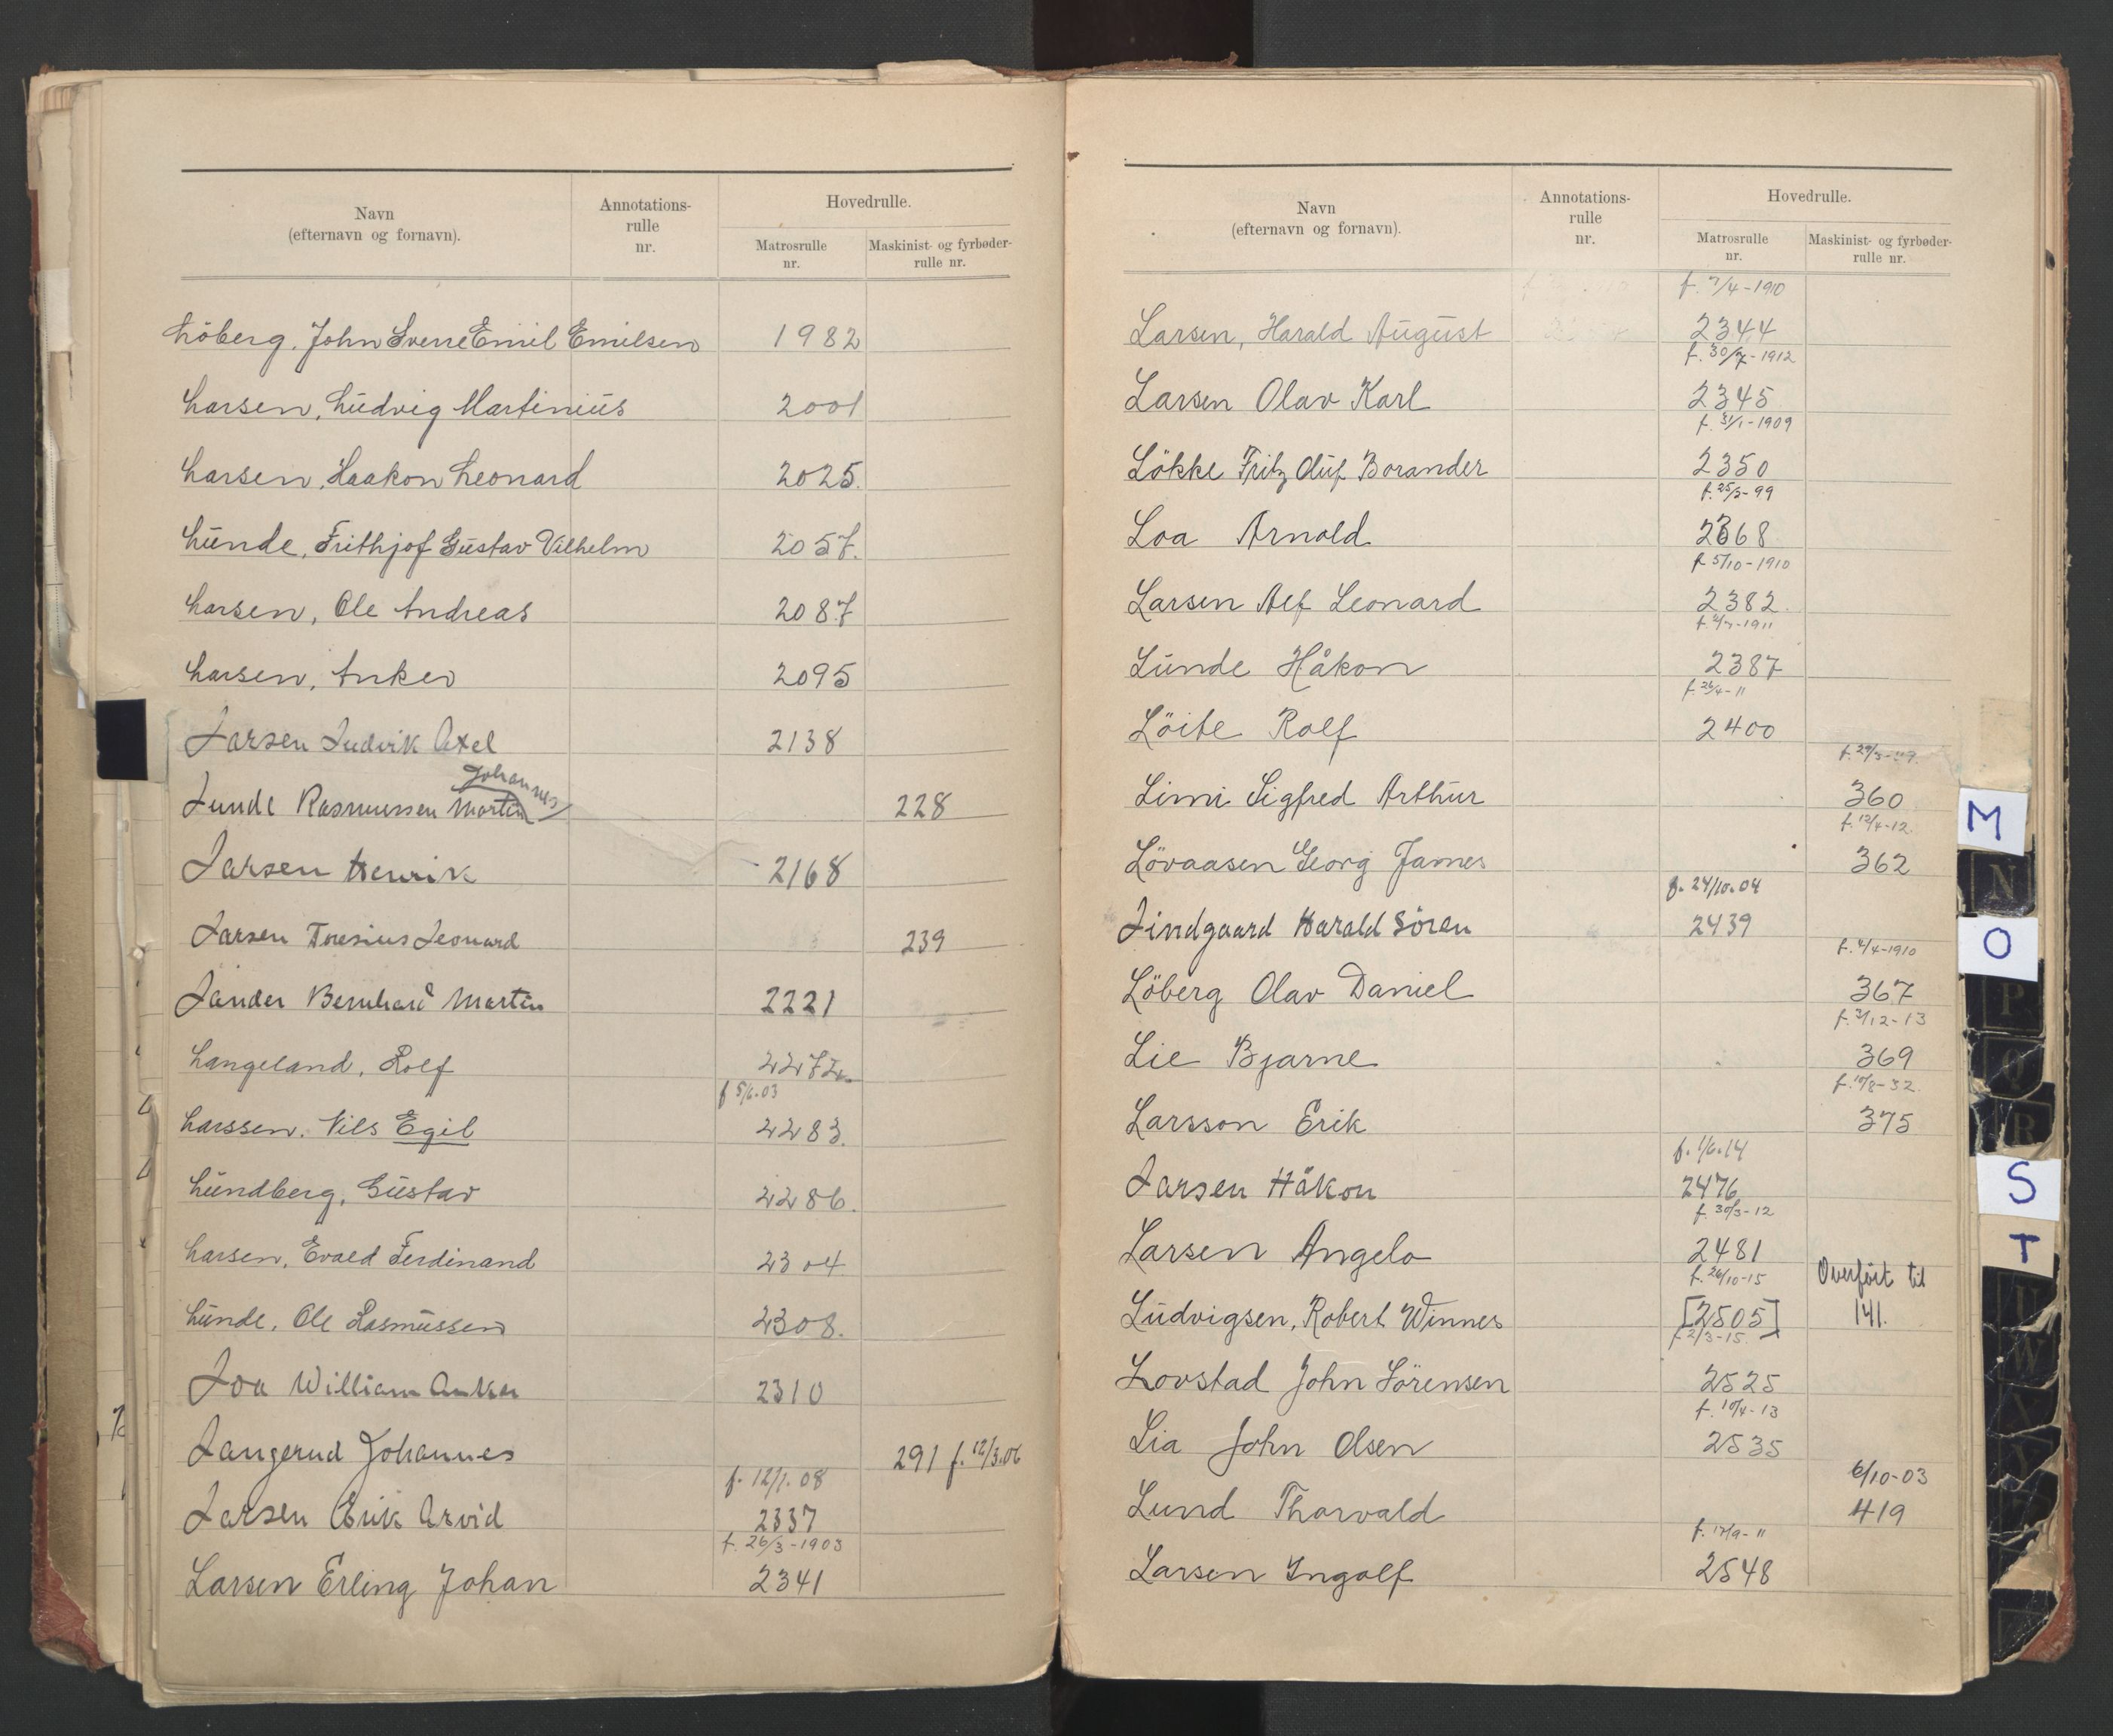 Navn
(efternavn og fornavn).
Annotations-
rulle
nr.
Hovedrulle.
Matrosrulle
nr.
Maskinist- og fyrbøder-
rulle nr.
Löberg, John Sverre Emil Emilsen 1982
Larsen, Ludvig Martinius 2001
Larsen, Haakon Leonard 2025.
Lunde, Frithjof Gustav Vilhelm 2057.
Larsen, Ole Andreas 2087
Larsen, Anker 2095
Larsen Ludvik Axel 2138
Johannes
Lunde Rasmussen Martin 228
Larsen Henrik 2168
Larsen Leonard 239
Lander Bernhard Martin 2221
Langeland, Rolf 2272
f 5/6.03
Larssen. Nils Egil 2283.
Lundberg, Gustav 2286.
Larsen, Evald Ferdinand 2304
Lunde, Ole Rasmussen 2308.
Loa William Anker 2310
Langerud Johannes 291 f. 12/3.06
f. 12/1.08
Larsen Erik Arvid 2337
f. 26/3-1903
Larsen Erling Johan 2341
Navn
(efternavn og fornavn).
Annotations-
rulle
nr.
Hovedrulle.
Matrosrulle
nr.
Maskinist- og fyrbøder-
rulle nr.
f. 7/4-1910
Larsen, Harald August 2344
f. 30/7-1912
Larsen Olav Karl 2345
f. 31/1-1909
Lökke Fritz Oluf Borander 2350
f. 25/3-99
Loa Arnold 2368
f. 5/10-1910
Larsen Alf Leonard 2382.
Lunde Håkon 2387
f. 26/4-11
Löite Rolf 2400
Limi Sigfred Arthur 360
f. 12/4-12.
Lövaasen Georg James 362
f. 24/10.04
Lindgaard Harald Sören 2439
Löberg Olav Daniel 367
Lie Bjarne 369
f. 10/8-32.
Larsson Erik 375
f. 1/6.14
Larsen Håkon 2476
f. 30/3-12
Larsen Angelo 2481
f. 26/10-15 Overført til
Ludvigsen, Robert Winnes [2505] 141.
f 2/3-15.
Lovstad John Sörensen 2525
f. 10/4-13
Lia John Olsen 2535
6/10-03
Lund Thorvald 419
f. 17/9-11
Larsen Ingolf 2548
M
N
O
P
Q
R
S
T
U
W
X
Y